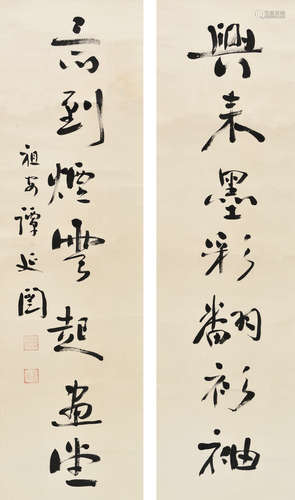 興來墨彩翻衫袖
意到煙雲起畫堂
祖安譚延闓